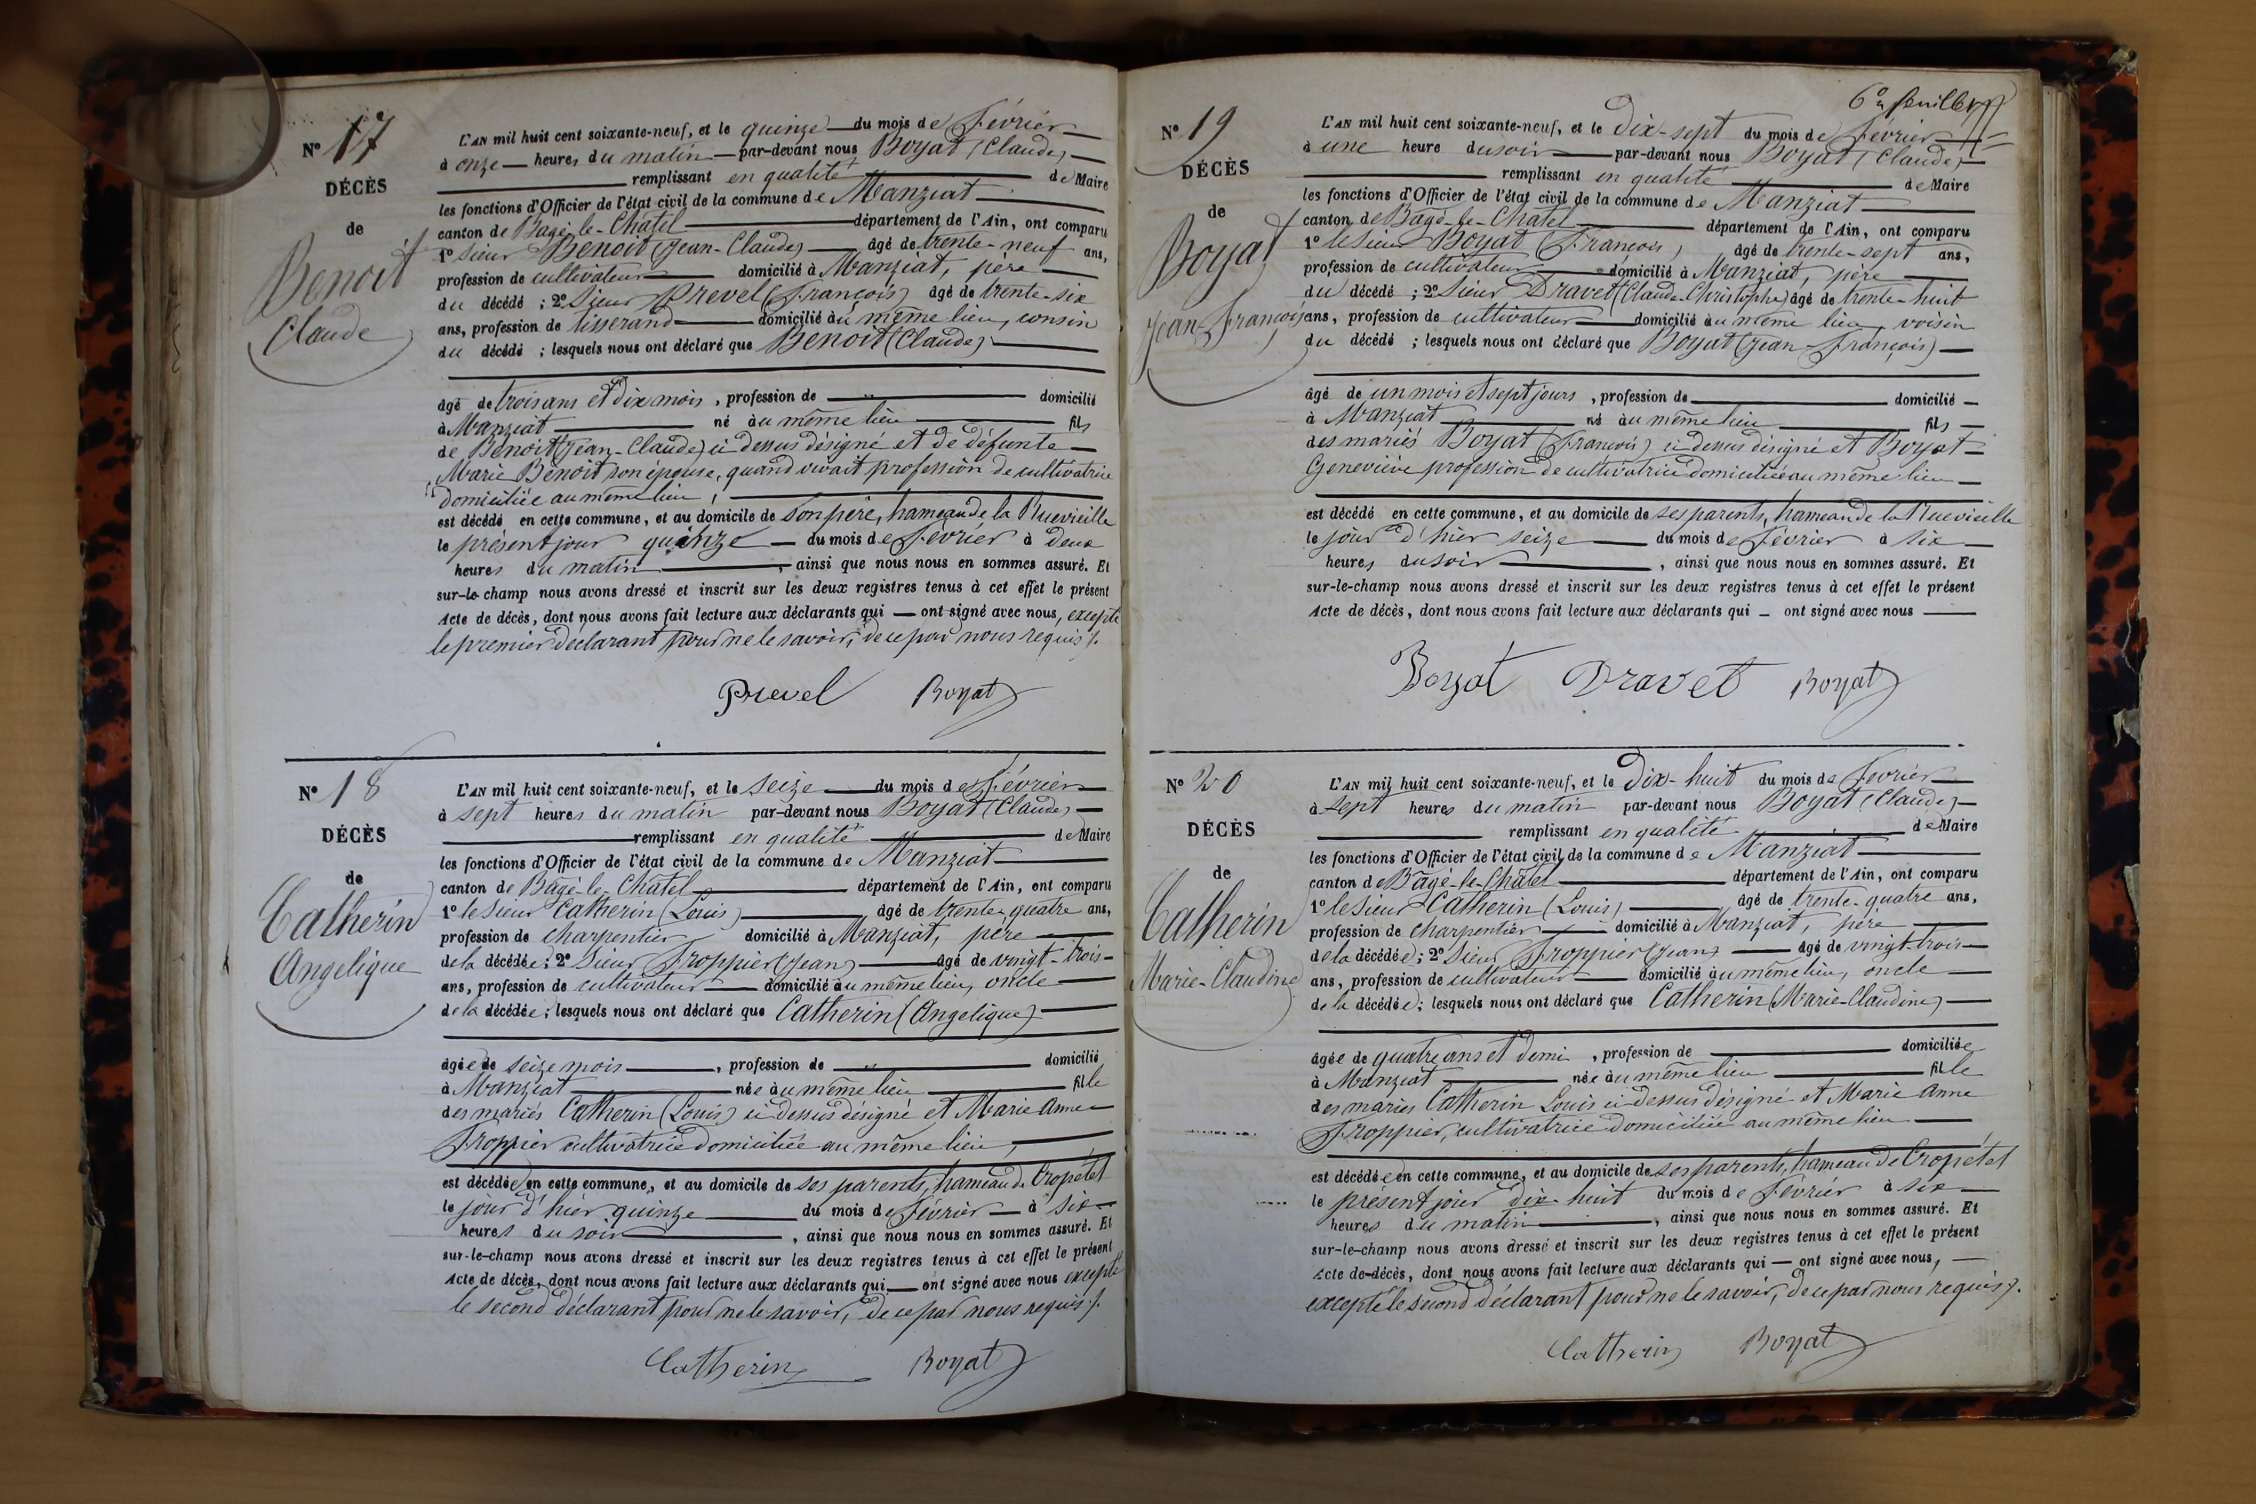 N° 17
DÉCÈS
de
Benoit
Claude
L'AN mil huit cent soixante-neuf, et le quinze du mois de Février
à onze heures du matin par-devant nous Boyat (Claude)
remplissant en qualité de Maire
les fonctions d'Officier de l'état civil de la commune de Manziat
canton de Bagé-le-Chatel département de l'Ain, ont comparu
1° sieur Benoit (Jean-Claude) âgé de trente-neuf ans,
profession de cultivateur domicilié à Manziat, père
du décédé ; 2° Sieur Prevel (François) âgé de trente-six
ans, profession de tisserand domicilié au même lieu, cousin
du décédé ; lesquels nous ont déclaré que Benoit (Claude)
âgé de trois ans et dix mois, profession de " domicilié
à Manziat né au même lieu fils
de Benoit (Jean-Claude) ci dessus désigné et de défunte
Marie Benoit son épouse, quand vivait profession de cultivatrice
domiciliée au même lieu,
est décédé en cette commune, et au domicile de son père, hameau de la Ruevieille
le présent jour quinze du mois de Février à deux
heures du matin, ainsi que nous nous en sommes assuré. Et
sur-le-champ nous avons dressé et inscrit sur les deux registres tenus à cet effet le présent
Acte de décès, dont nous avons fait lecture aux déclarants qui — ont signé avec nous, excepté
le premier déclarant pour ne le savoir, de ce par nous requis ./.
Prevel Boyat
N° 18
DÉCÈS
de
Catherin
Angelique
L'AN mil huit cent soixante-neuf, et le seize du mois de Février
à sept heures du matin par-devant nous Boyat (Claude)
remplissant en qualité de Maire
les fonctions d'Officier de l'état civil de la commune de Manziat
canton de Bagé-le-Chatel département de l'Ain, ont comparu
1° le Sieur Catherin (Louis) âgé de trente-quatre ans,
profession de charpentier domicilié à Manziat, père
de la décédée ; 2° Sieur Froppier (Jean) âgé de vingt-trois
ans, profession de cultivateur domicilié au même lieu, oncle
de la décédée ; lesquels nous ont déclaré que Catherin (Angelique)
âgée de seize mois, profession de " domicilié
à Manziat née au même lieu fille
des mariés Catherin (Louis) ci dessus désigné et Marie Anne
Froppier cultivatrice domiciliée au même lieu,
est décédée en cette commune, et au domicile de ses parents, hameau de Cropetet
le jour d'hier quinze du mois de Février à six
heures du soir, ainsi que nous nous en sommes assuré. Et
sur-le-champ nous avons dressé et inscrit sur les deux registres tenus à cet effet le présent
Acte de décès, dont nous avons fait lecture aux déclarants qui — ont signé avec nous excepté
le second déclarant pour ne le savoir, de ce par nous requis ./.
Catherin Boyat
6e feuillet
N° 19
DÉCÈS
de
Boyat
Jean-François
L'AN mil huit cent soixante-neuf, et le dix-sept du mois de Février
à une heure du soir par-devant nous Boyat (Claude)
remplissant en qualité de Maire
les fonctions d'Officier de l'état civil de la commune de Manziat
canton de Bagé-le-Chatel département de l'Ain, ont comparu
1° le Sieur Boyat (François) âgé de trente-sept ans,
profession de cultivateur domicilié à Manziat, père
du décédé ; 2° Sieur Dravet (Claude-Christophe) âgé de trente-huit
ans, profession de cultivateur domicilié au même lieu, voisin
du décédé ; lesquels nous ont déclaré que Boyat (Jean-François)
âgé de un mois et sept jours, profession de domicilié
à Manziat né au même lieu fils
des mariés Boyat (François) ci dessus désigné et Boyat
Geneviève profession de cultivatrice domiciliée au même lieu
est décédé en cette commune, et au domicile de ses parents, hameau de la Ruevieille
le jour d'hier seize du mois de Février à six
heures du soir, ainsi que nous nous en sommes assuré. Et
sur-le-champ nous avons dressé et inscrit sur les deux registres tenus à cet effet le présent
Acte de décès, dont nous avons fait lecture aux déclarants qui — ont signé avec nous
Boyat Dravet Boyat
N° 20
DÉCÈS
de
Catherin
Marie-Claudine
L'AN mil huit cent soixante-neuf, et le Dix-huit du mois de Fevrier
à sept heures du matin par-devant nous Boyat (Claude)
remplissant en qualité de Maire
les fonctions d'Officier de l'état civil de la commune de Manziat
canton de Bagé-le-Chatel département de l'Ain, ont comparu
1° le Sieur Catherin (Louis) âgé de trente-quatre ans,
profession de charpentier domicilié à Manziat, père
de la décédée ; 2° Sieur Froppier (Jean) âgé de vingt-trois
ans, profession de cultivateur domicilié au même lieu, oncle
de la décédée ; lesquels nous ont déclaré que Catherin (Marie-Claudine)
âgée de quatre ans et demi, profession de domiciliée
à Manziat née au même lieu fille
des mariés Catherin Louis ci dessus désigné et Marie Anne
Froppier, cultivatrice domiciliée au même lieu
est décédée en cette commune, et au domicile de ses parents, hameau de Cropetet
le présent jour dix-huit du mois de Février à six
heures du matin, ainsi que nous nous en sommes assuré. Et
sur-le-champ nous avons dressé et inscrit sur les deux registres tenus à cet effet le présent
Acte de décès, dont nous avons fait lecture aux déclarants qui — ont signé avec nous,
excepté le second déclarant pour ne le savoir, de ce par nous requis ./.
Catherin Boyat